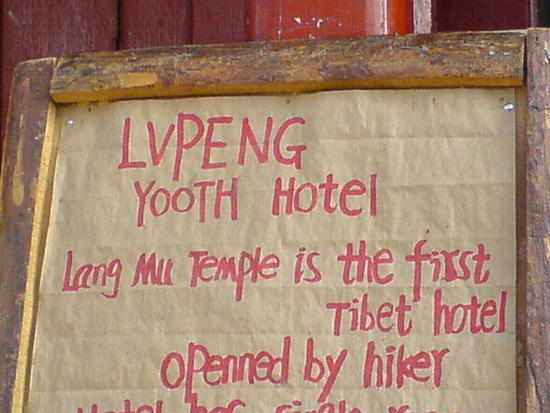 LVPENG
YOOTH HOtel
Lang Mu Temple is the first
Tibet hotel
openned by hiker
Hotel has single